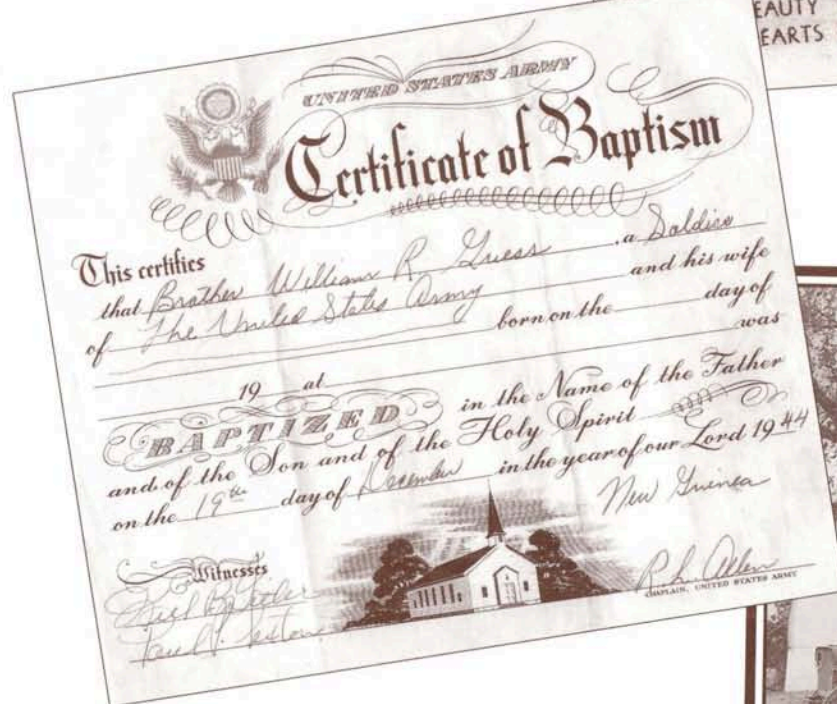 EAUTY
EARTS
UNITED STATES ARMY
Certificate of Baptism
This certifies
that Brother William R. Guess, a Soldier
of The United States Army and his wife
born on the day of
19 at was
BAPTIZED in the Name of the Father
and of the Son and of the Holy Spirit
on the 19th day of December in the year of our Lord 1944
New Guinea
Witnesses
R. L. Allen
CHAPLAIN, UNITED STATES ARMY
Paul